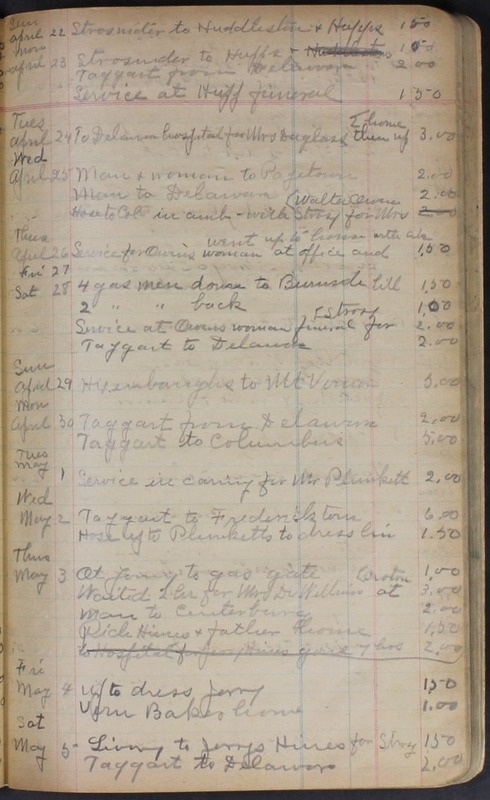 Sun
April 22 Strosnider to Huddleston & Hupps 1 50
Mon
April 23 Strosnider to Huffs & Huddlestons 1 50
Taggart from Delaware 2 00
Service at Huff funeral 1 50
Tues & home
April 24 To Delaware hospital for Mrs Duglass then up 3.00
Wed
April 25 Man & woman to Pagetown 2.00
Man to Delaware (Walter Owen 2.00
Hose to Col in amb - with Stroz for Mrs
Thus went up to house with
April 26 Service for Owens woman at office and 1,50
Fri 27
Sat 28 4 gas men down to Burnside hill 1,50
2 " " back 1,00
& Stroz
Service at Owens woman funeral for 2.00
Taggart to Delaware 2.00
Sun
April 29 to Mt Vernon 3.00
Mon
April 30 Taggart from Delaware 2,00
Taggart to Columbus 5,00
Tues
May 1 Service in caring for Mr Plunkett 2,00
Wed
May 2 Taggart to Fredericktown 6.00
Hose up to Plunketts to dress him 1.50
Thus
May 3 to gas gate Croton 1,00
Waited 2 hr for Mrs Dr at 3.00
Man to Centerburg 2,00
Ride Hines & father home 1,50
to Hospital for Hines gone 7 hrs 2,00
Fri
May 4 up to dress Jerry 1,50
Vern Baker home 1.00
Sat
May 5 Living to Jerrys Hines for Stroz 1 50
Taggart to Delaware 2,00